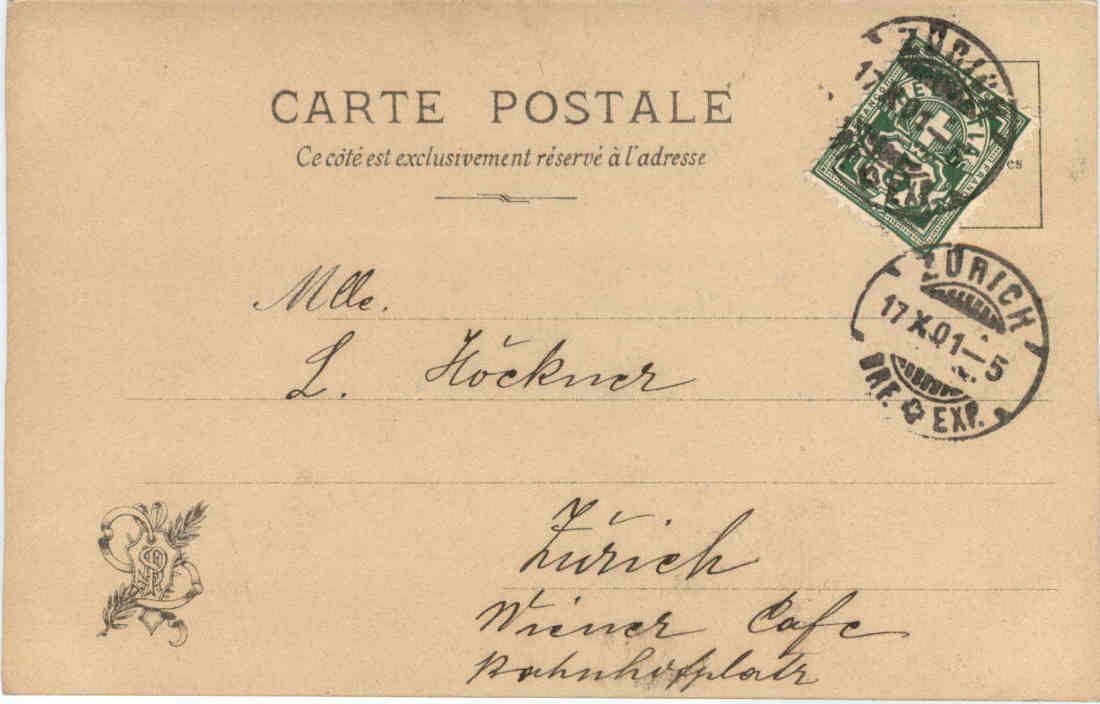 CARTE POSTALE
Ce côté est exclusivement réservé à l'adresse
ZÜRICH
17.X.01–5
BRF. EXP.
Mlle.
L. Höckner
Zürich
Wiener Cafe
Bahnhofplatz